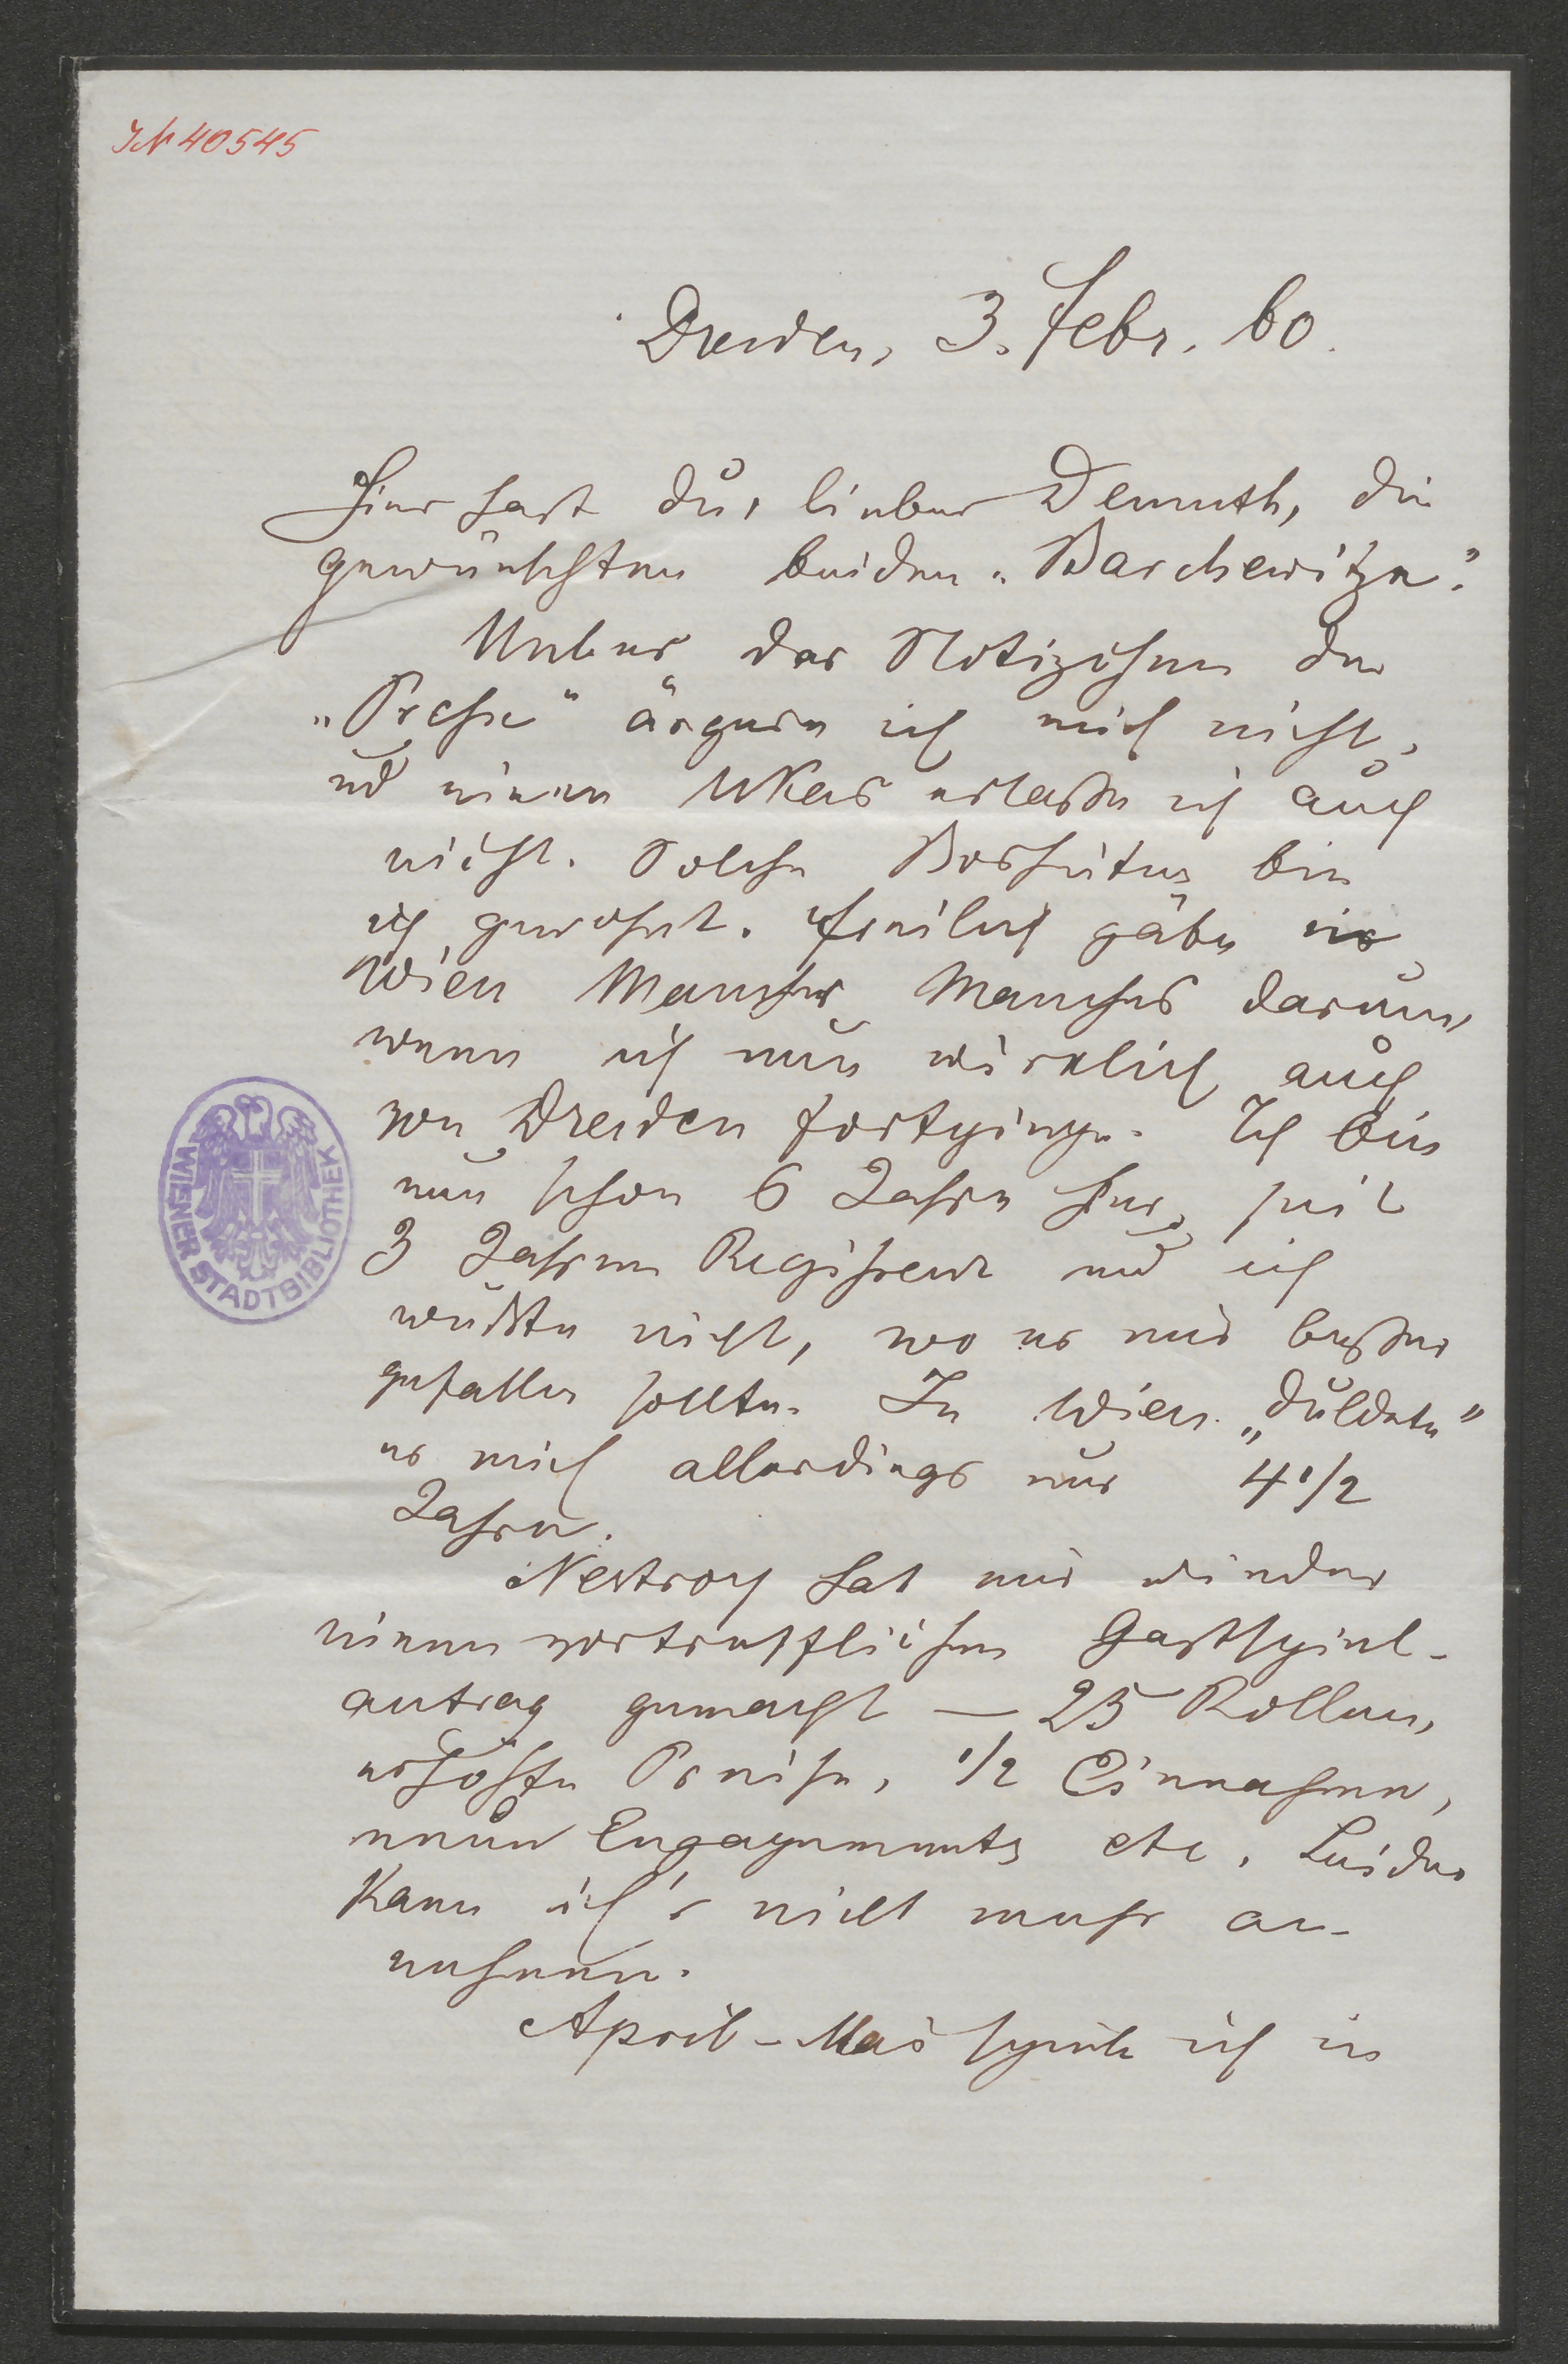 IN 40545
Dresden, 3. Febr. 60.
Hier hast du, lieber Demuth, die
gewünschten beiden „Barchewitze“.
Ueber das Notizchen der
„Presse“ ärgere ich mich nicht,
und einen Ukas erlasse ich auch
nicht. Solche Bosheiten bin
ich gewohnt. Freilich gäbe in
Wien Mancher Manches darum,
wenn ich nun wirklich auch
von Dresden fortginge. Ich bin
nun schon 6 Jahre hier, seit
3 Jahren Regisseur und ich
wüßte nicht, wo es mir besser
gefallen sollte. In Wien „duldete“
es mich allerdings nur 4 1/2
Jahre.
Nestroy hat mir wieder
einen vortrefflichen Gastspiel-
antrag gemacht — 25 Rollen,
erhöhte Preise, 1/2 Einnahme,
neue Engagements etc. Leider
kann ich's nicht mehr an-
nehmen.
April-Mai spiele ich in
WIENER STADTBIBLIOTHEK